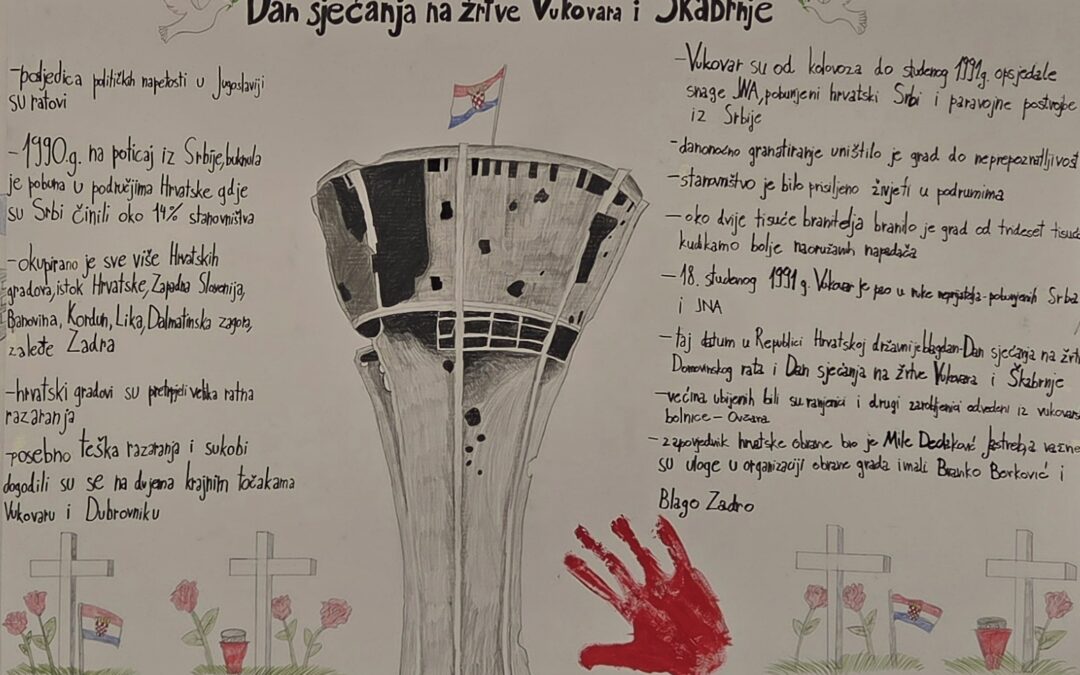 Dan sjećanja na žrtve Vukovara i Škabrnje
-posljedica političkih napetosti u Jugoslaviji
su ratovi
- 1990.g. na poticaj iz Srbije, buknula
je pobuna u područjima Hrvatske gdje
su Srbi činili oko 14% stanovništva
-okupirano je sve više Hrvatskih
gradova, istok Hrvatske, Zapadna Slavonija,
Banovina, Kordun, Lika, Dalmatinska zagora,
zaleđe Zadra
-hrvatski gradovi su pretrpjeli velika ratna
razaranja
-posebno teška razaranja i sukobi
dogodili su se na dvjema krajnim točakama
Vukovaru i Dubrovniku
-Vukovar su od kolovoza do studenog 1991g. opsjedale
snage JNA, pobunjeni hrvatski Srbi i paravojne postrojbe
iz Srbije
-danonoćno granatiranje uništilo je grad do neprepoznatljivost
-stanovništvo je bilo prisiljeno živjeti u podrumima
- oko dvije tisuće branitelja branilo je grad od trideset tisuća
kudikamo bolje naoružanih napadača
- 18. studenog 1991 g. Vukovar je pao u ruke neprijatelja-pobunjenih Srba
i JNA
- taj datum u Republici Hrvatskoj državni je blagdan-Dan sjećanja na žrt
Domovinskog rata i Dan sjećanja na žrtve Vukovara i Škabrnje
-većina ubijenih bili su ranjenici i drugi zarobljenici odvedeni iz vukovars
bolnice - Ovčara
- zapovjednik hrvatske obrane bio je Mile Dedaković Jastreb, a važne
su uloge u organizaciji obrane grada imali Branko Borković i
Blago Zadro